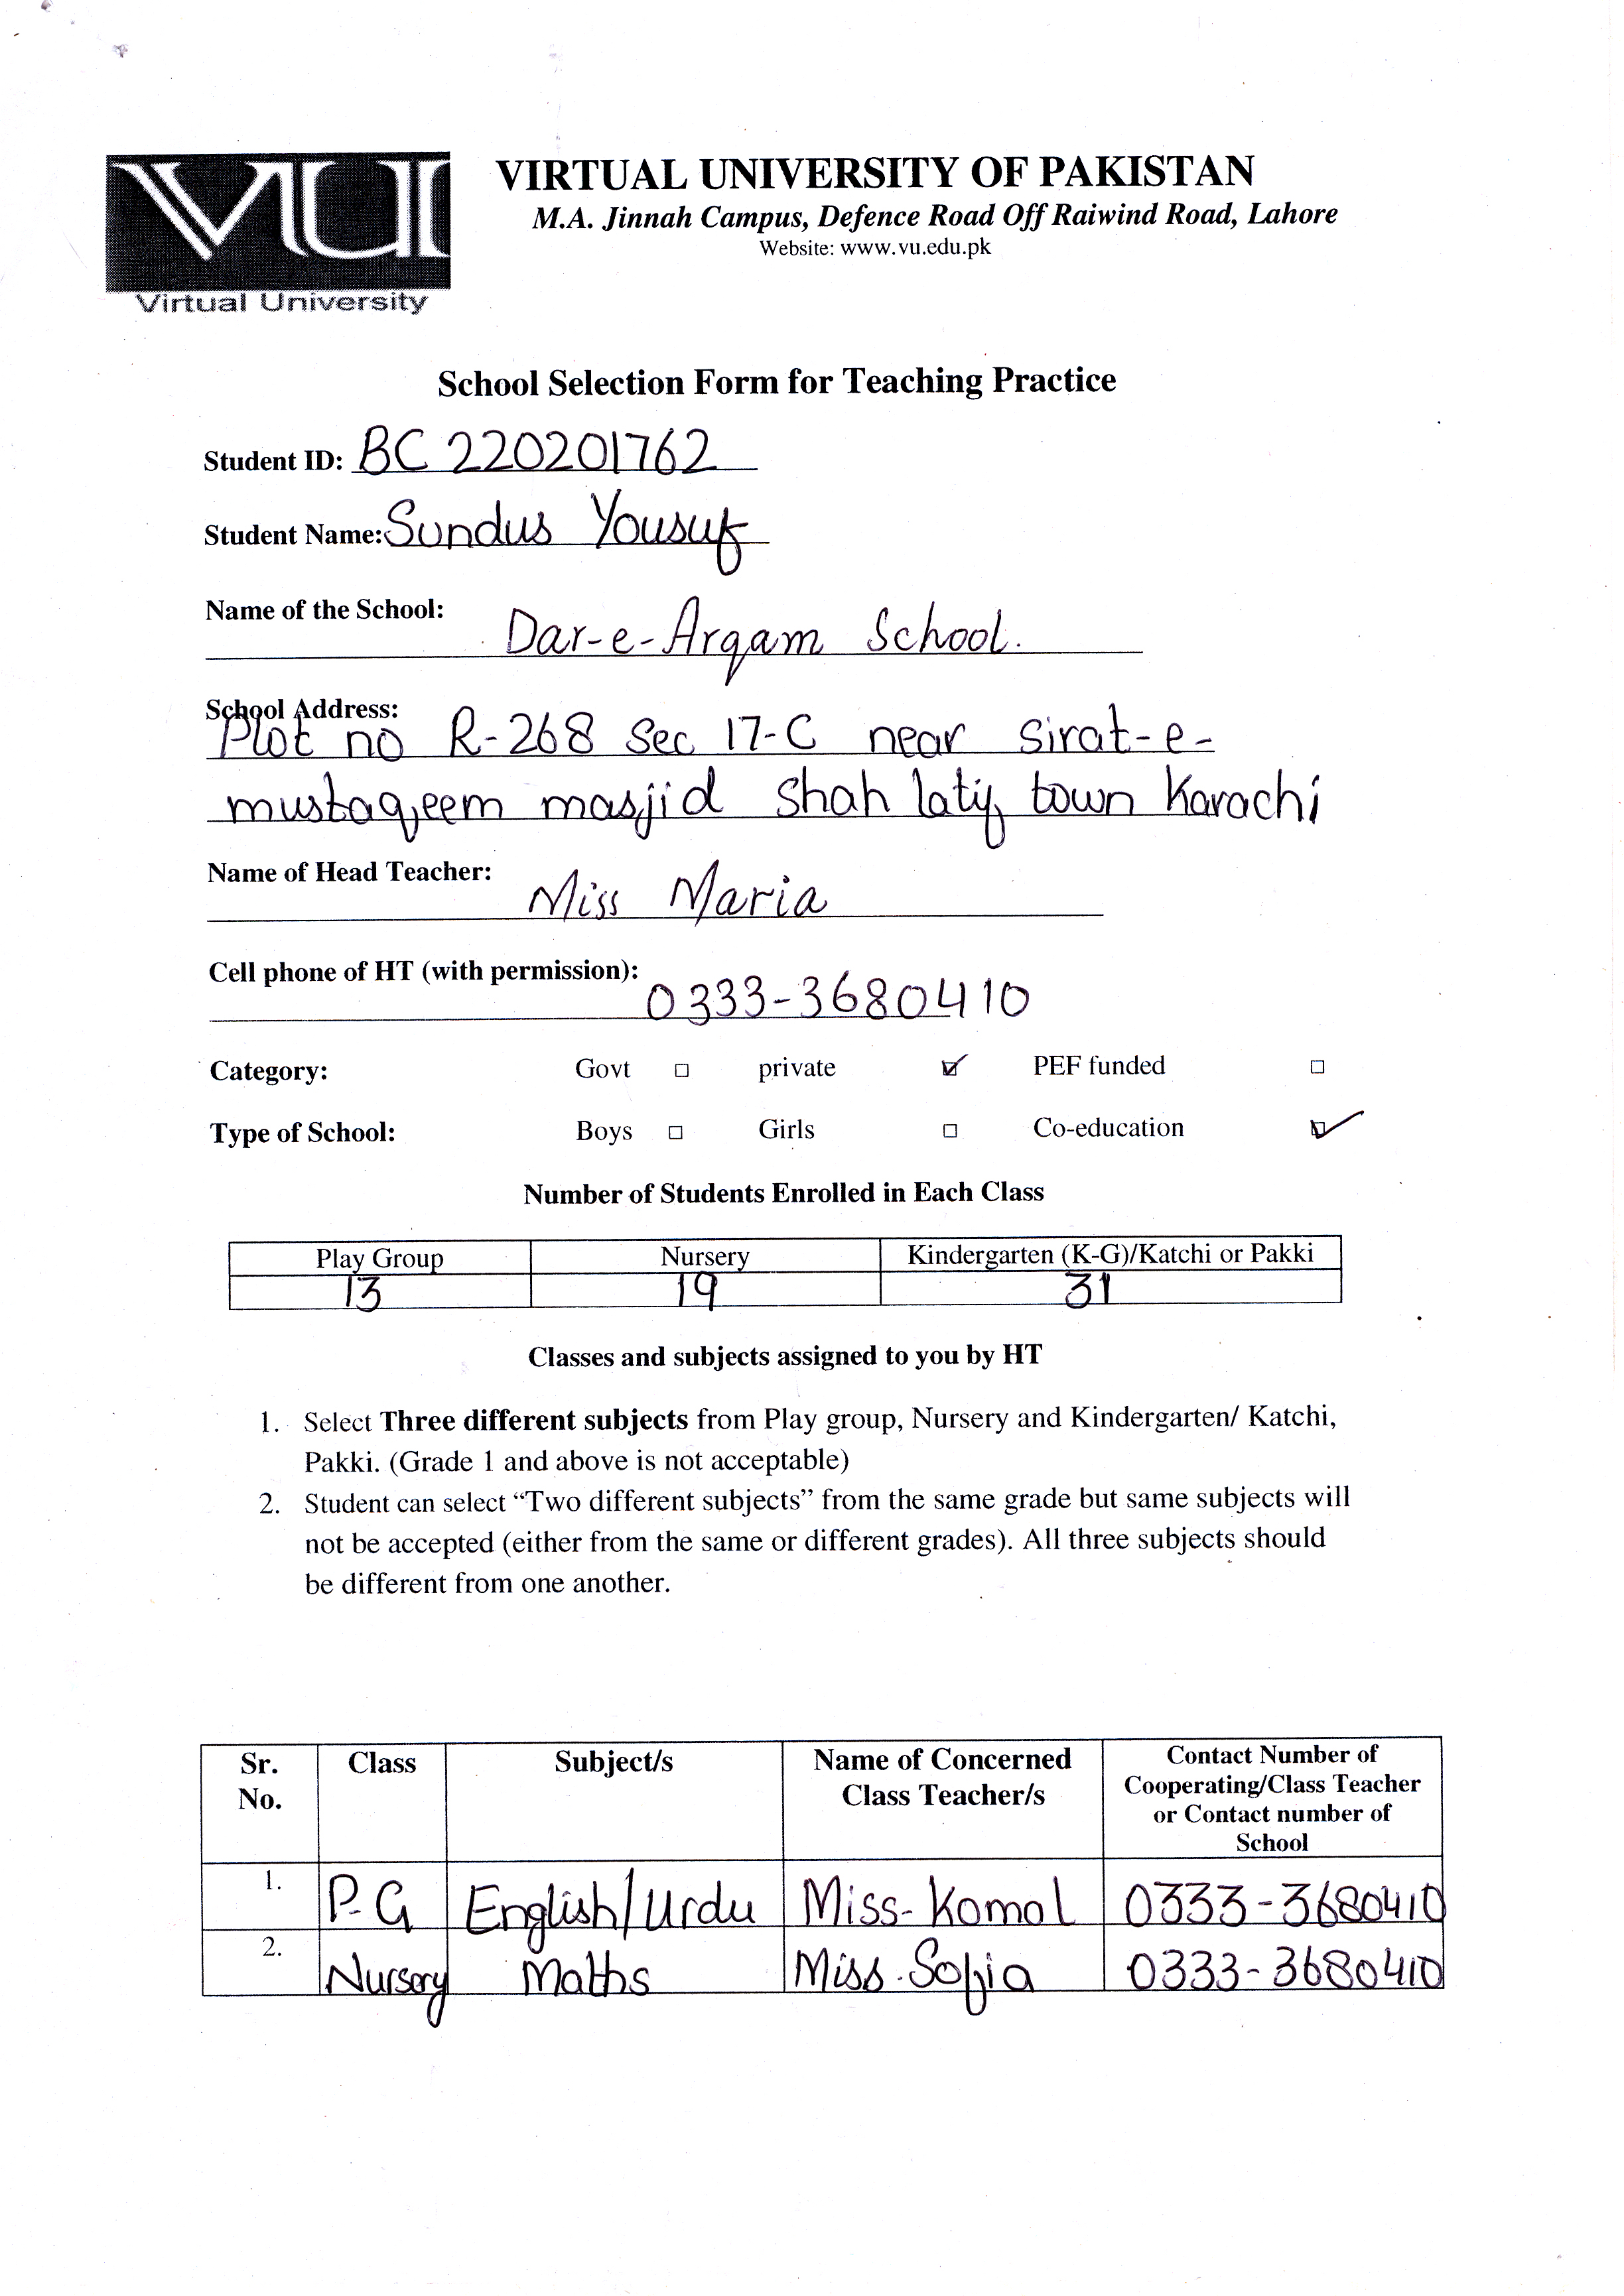 VU
Virtual University
VIRTUAL UNIVERSITY OF PAKISTAN
M.A. Jinnah Campus, Defence Road Off Raiwind Road, Lahore
Website: www.vu.edu.pk
School Selection Form for Teaching Practice
Student ID: BC 220201762
Student Name: Sundus Yousuf
Name of the School: Dar-e-Arqam School.
School Address:
Plot no R-268 Sec 17-C near sirat-e-
mustaqeem masjid shah latif town Karachi
Name of Head Teacher: Miss Maria
Cell phone of HT (with permission): 0333-3680410
Category: Govt ☐ private ☑ PEF funded ☐
Type of School: Boys ☐ Girls ☐ Co-education ☑
Number of Students Enrolled in Each Class
Play Group Nursery Kindergarten (K-G)/Katchi or Pakki
13 19 31
Classes and subjects assigned to you by HT
1. Select Three different subjects from Play group, Nursery and Kindergarten/ Katchi,
Pakki. (Grade 1 and above is not acceptable)
2. Student can select “Two different subjects” from the same grade but same subjects will
not be accepted (either from the same or different grades). All three subjects should
be different from one another.
Sr. No. Class Subject/s Name of Concerned Class Teacher/s Contact Number of Cooperating/Class Teacher or Contact number of School
1. P-G English/Urdu Miss-Komal 0333-3680410
2. Nursery Maths Miss-Sofia 0333-3680410